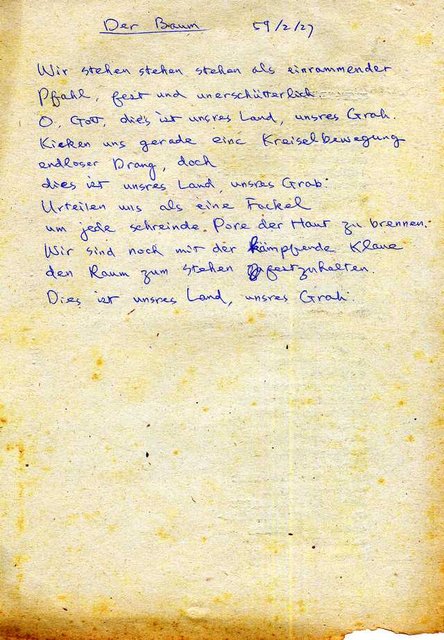 Der Baum 59/2/27
Wir stehen stehen stehen als einrammender
Pfahl, fest und unerschütterlich.
O, Gott, dies ist unsres Land, unsres Grab.
Kieken uns gerade eine Kreiselbewegung
endloser Drang, doch
dies ist unsres Land, unsres Grab.
Urteilen uns als eine Fackel
um jede schreinde Pore der Haut zu brennen.
Wir sind noch mit der kämpfende Klaue
den Raum zum stehen festzuhalten.
Dies ist unsres Land, unsres Grab.